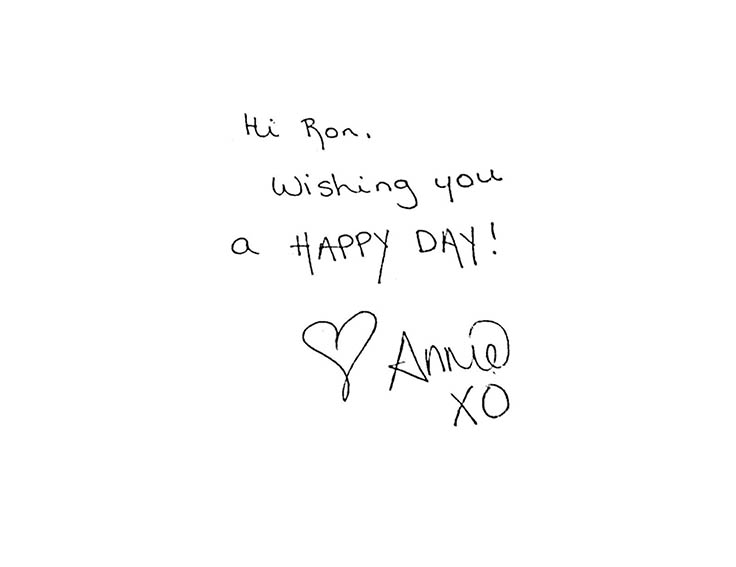 Hi Ron.
Wishing you
a HAPPY DAY!
♡ Annie
XO